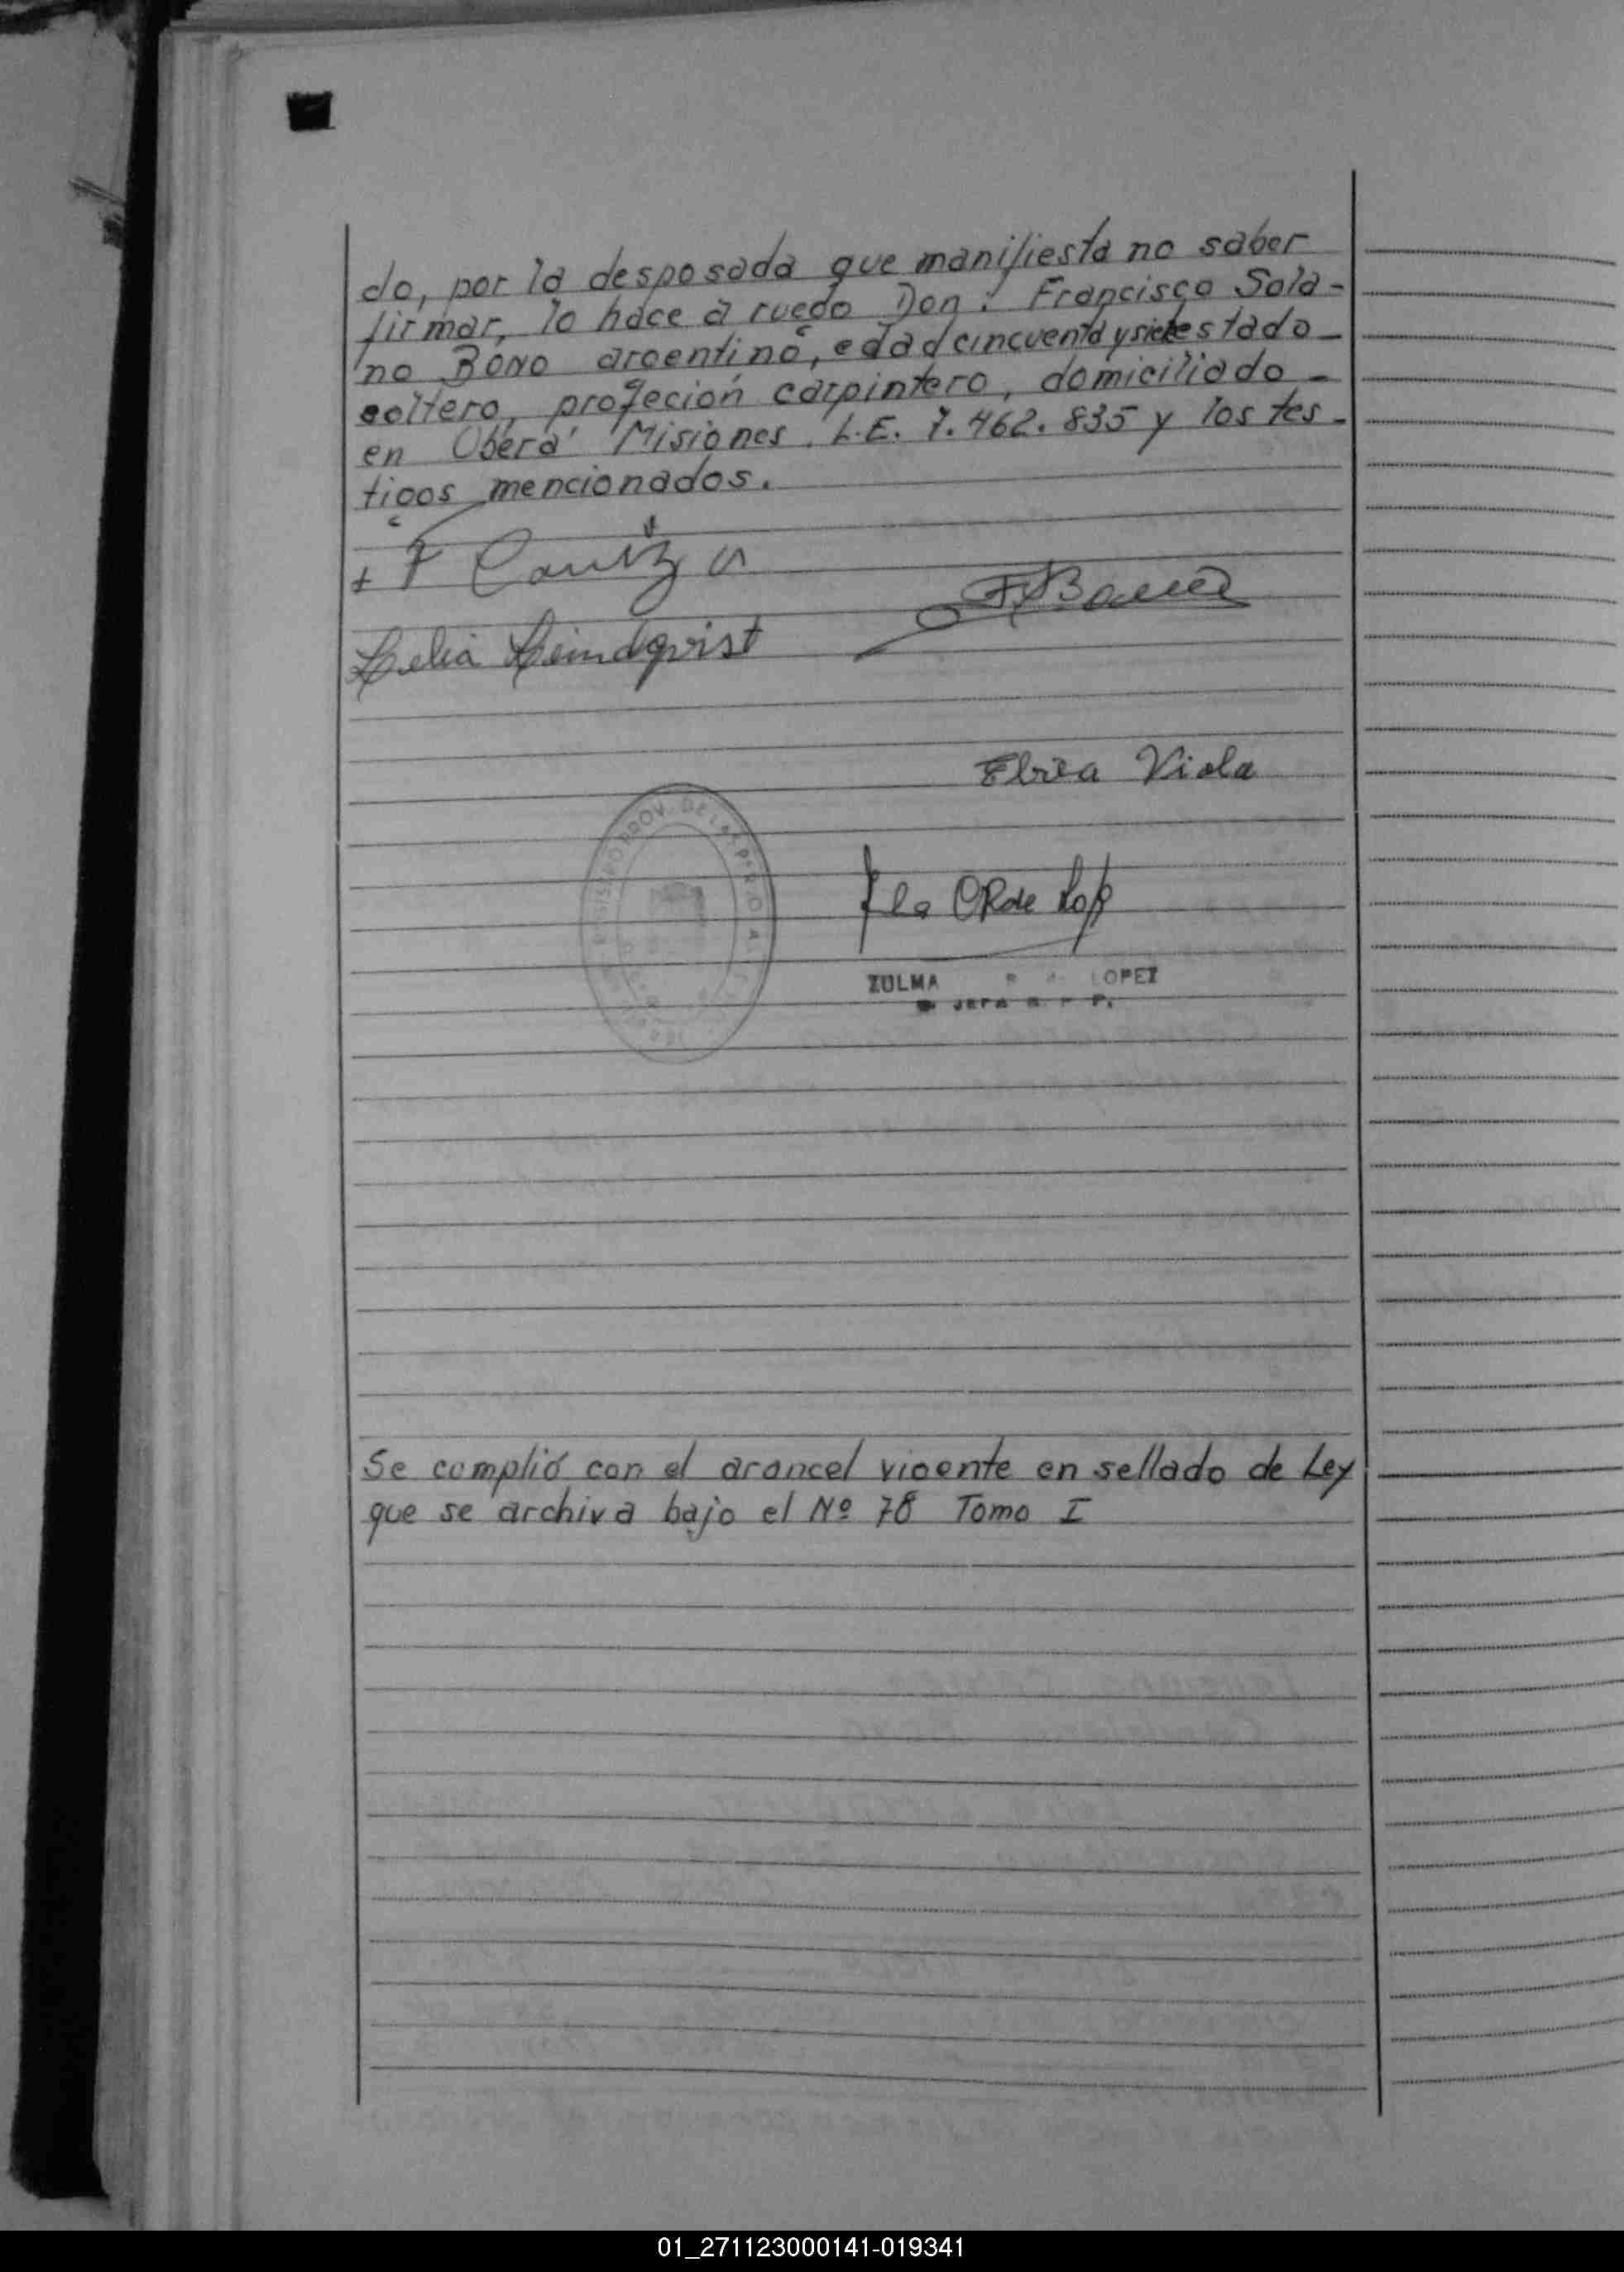 do, por la desposada que manifiesta no saber
firmar, lo hace a ruego Don: Francisco Sola-
no Bono argentino, edad cincuenta y siete estado
soltero, profeción carpintero, domiciliado
en Oberá Misiones. L.E. 7.462.835 y los tes-
tigos mencionados.
Lelia Leindqvist
Elvia Viola
ZULMA LOPEZ
JEFA R. P. P.
Se complió con el arancel vigente en sellado de Ley
que se archiva bajo el Nº 78 Tomo I
01_271123000141-019341